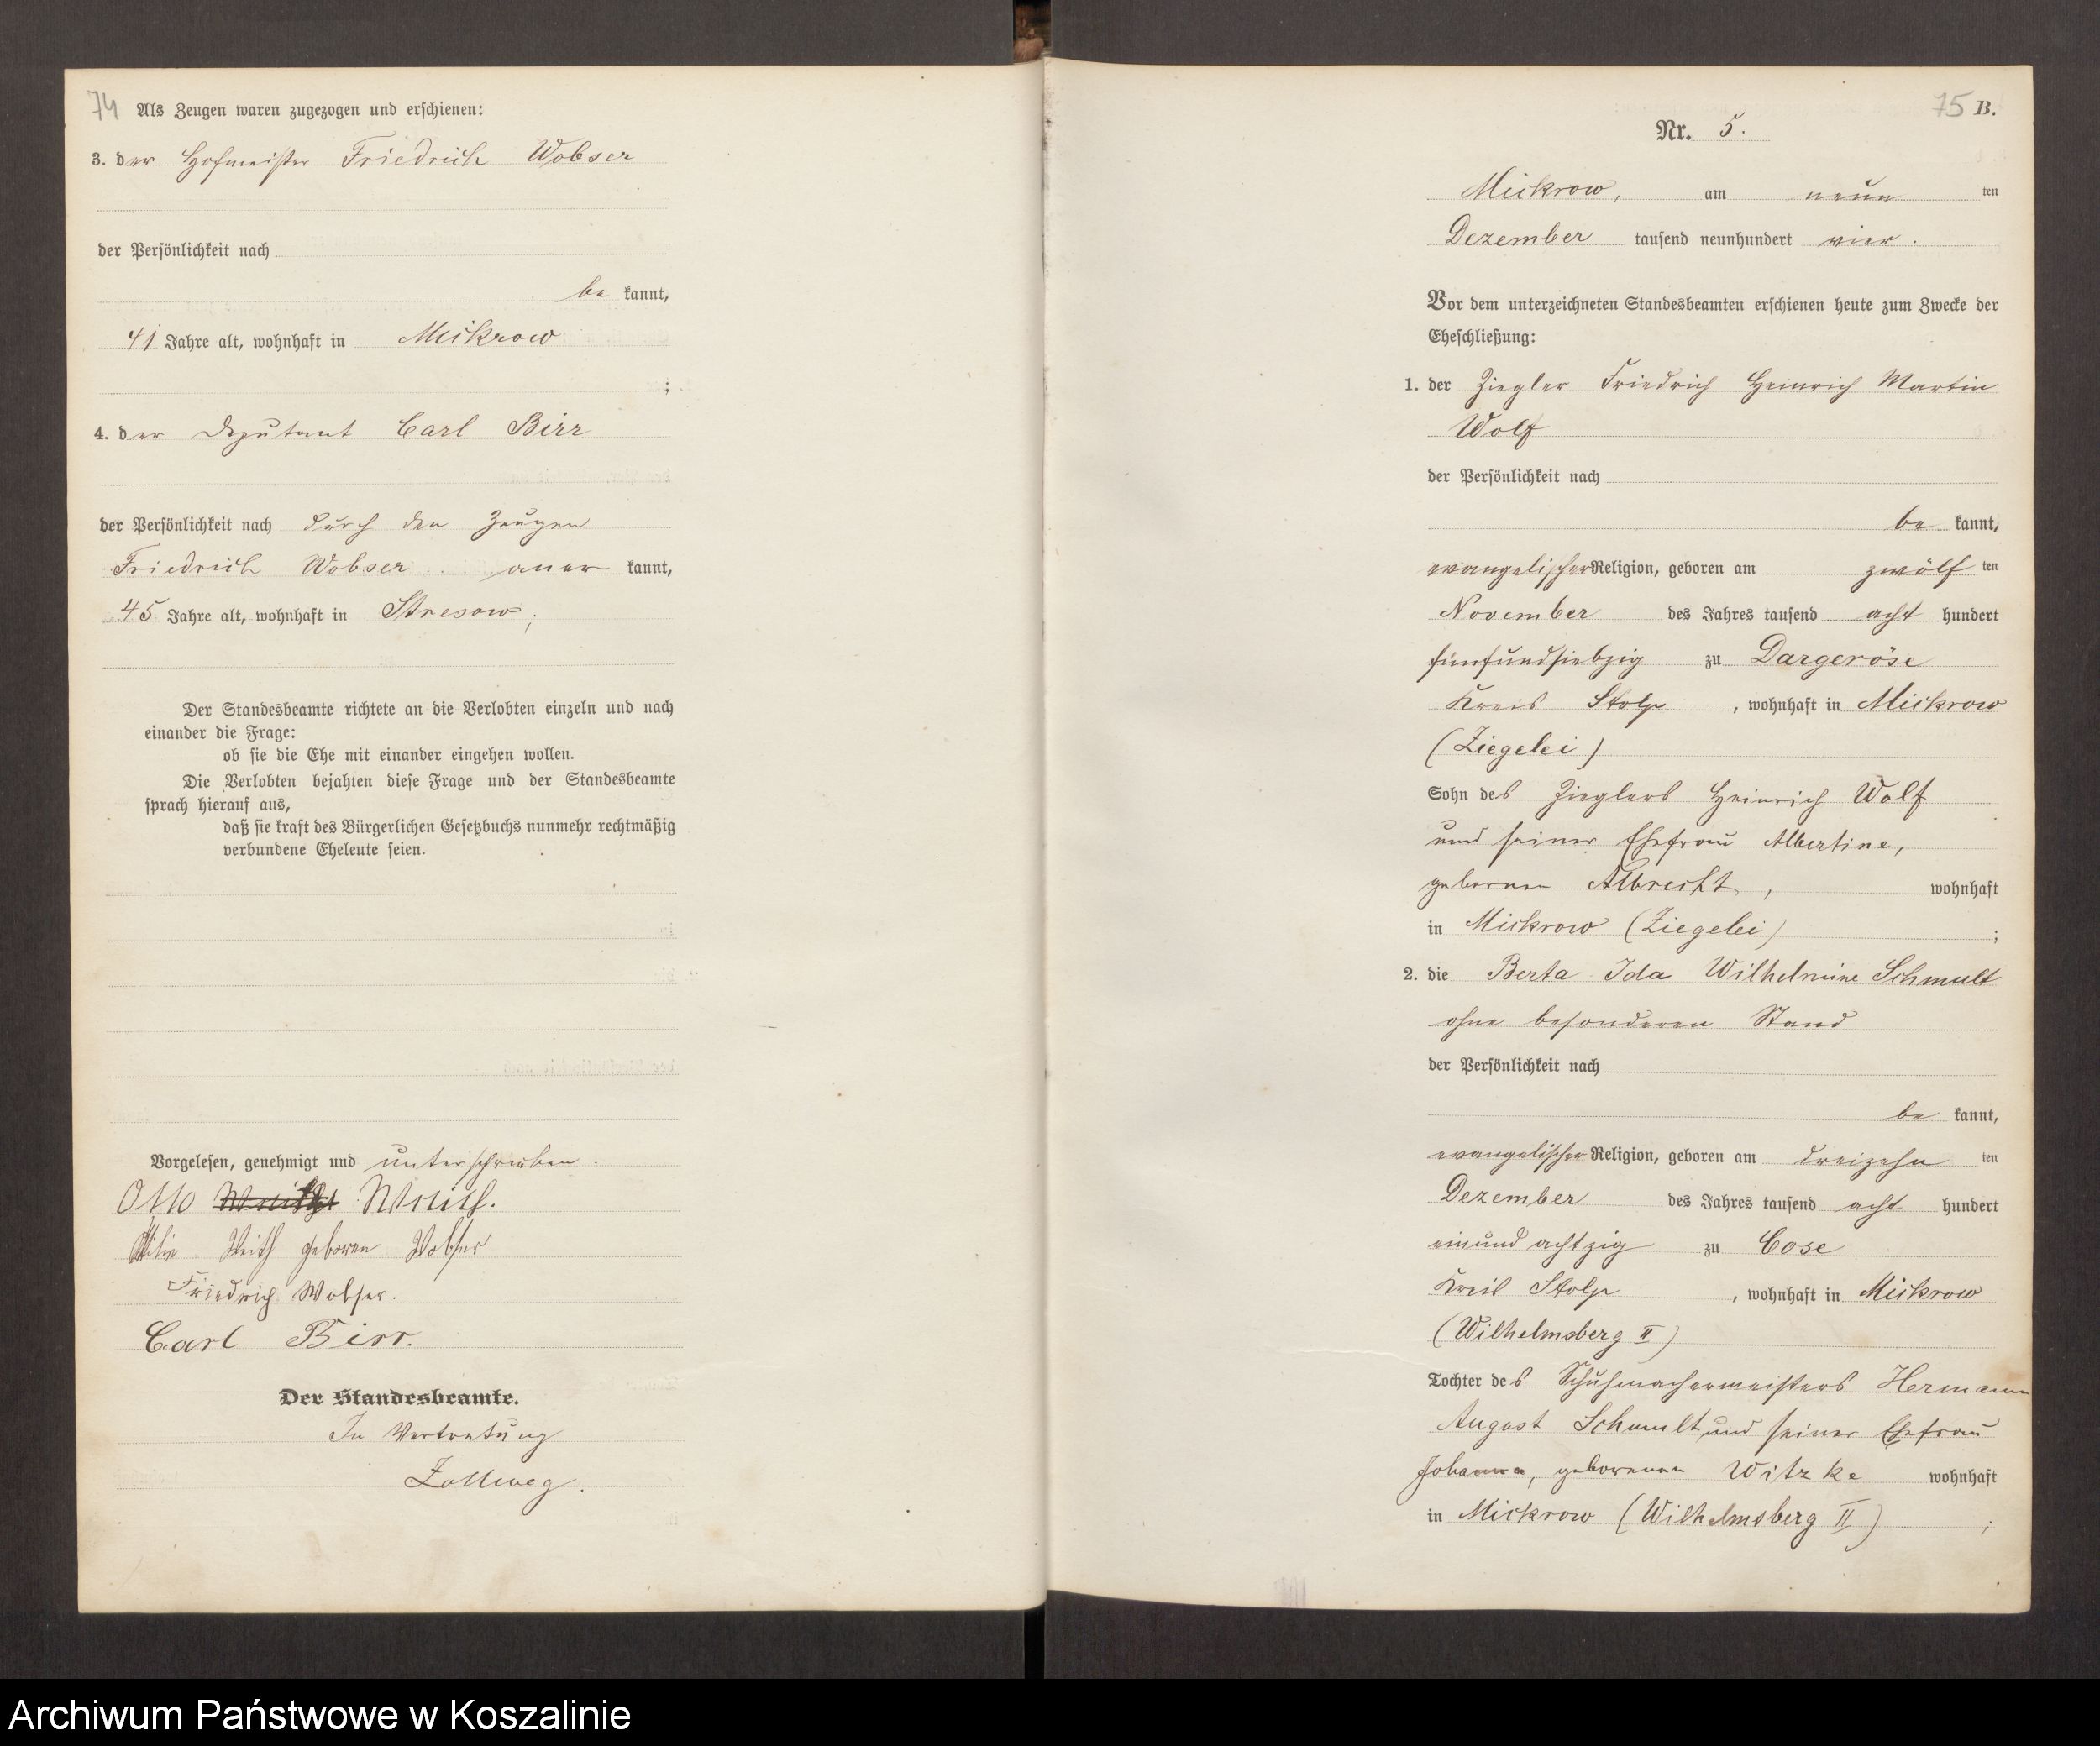 74 Als Zeugen waren zugezogen und erschienen:
3. der Hofmeister Friedrich Wobser
der Persönlichkeit nach
be kannt,
41 Jahre alt, wohnhaft in Mikrow
;
4. der Deputant Carl Birr
der Persönlichkeit nach durch den Zeugen
Friedrich Wobser aner kannt,
45 Jahre alt, wohnhaft in Stresow;
Der Standesbeamte richtete an die Verlobten einzeln und nach
einander die Frage:
ob sie die Ehe mit einander eingehen wollen.
Die Verlobten bejahten diese Frage und der Standesbeamte
sprach hierauf aus,
daß sie kraft des Bürgerlichen Gesetzbuchs nunmehr rechtmäßig
verbundene Eheleute seien.
Vorgelesen, genehmigt und unterschrieben.
Otto
geboren Wobser
Friedrich Wobser.
Carl Birr.
Der Standesbeamte.
In Vertretung
Zollweg.
75 B.
Nr. 5.
Mickrow, am neun ten
Dezember tausend neunhundert vier.
Vor dem unterzeichneten Standesbeamten erschienen heute zum Zwecke der
Eheschließung:
1. der Ziegler Friedrich Heinrich Martin
Wolf
der Persönlichkeit nach
be kannt,
evangelischer Religion, geboren am zwölf ten
November des Jahres tausend acht hundert
fünfundsiebzig zu Dargeröse
Kreis Stolp, wohnhaft in Mickrow
(Ziegelei)
Sohn des Zieglers Heinrich Wolf
und seiner Ehefrau Albertine,
geborenen Albrecht, wohnhaft
in Mickrow (Ziegelei) ;
2. die Berta Ida Wilhelmine Schmult
ohne besonderen Stand
der Persönlichkeit nach
be kannt,
evangelischer Religion, geboren am dreizehn ten
Dezember des Jahres tausend acht hundert
einundachtzig zu Cose
Kreis Stolp, wohnhaft in Mickrow
(Wilhelmsberg II)
Tochter des Schuhmachermeisters Hermann
August Schmult und seiner Ehefrau
Johanna, geborenen Witzke wohnhaft
in Mickrow (Wilhelmsberg II) ;
Archiwum Państwowe w Koszalinie